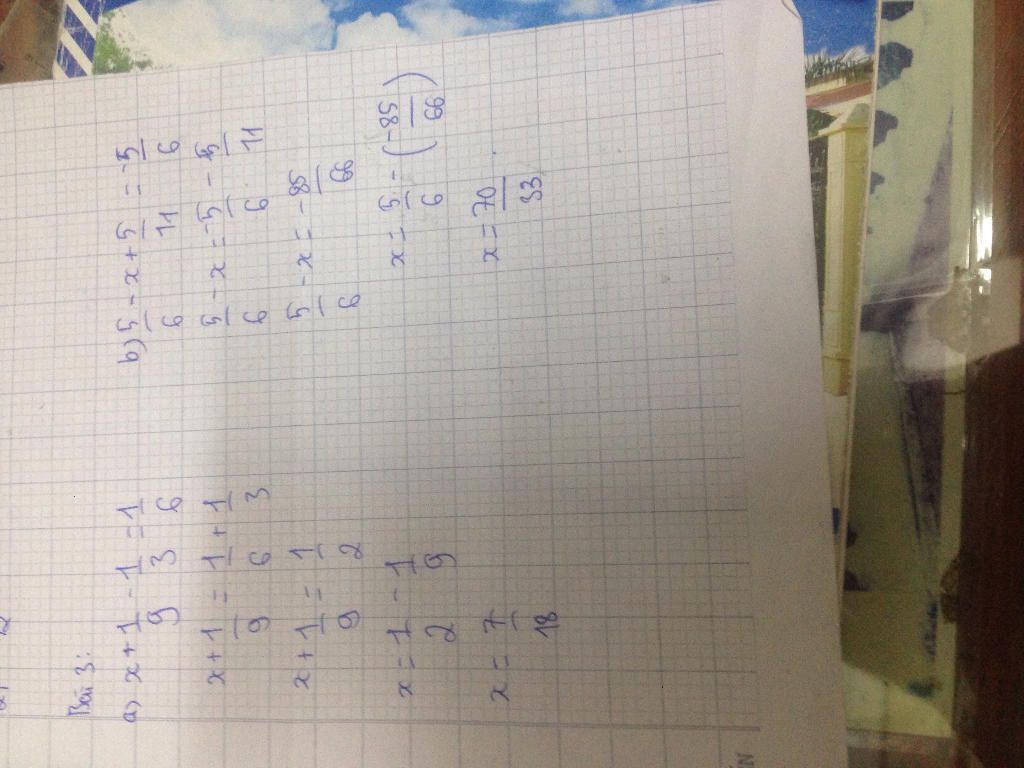 Bài 3:
a) x + 1/9 - 1/3 = 1/6
x + 1/9 = 1/6 + 1/3
x + 1/9 = 1/2
x = 1/2 - 1/9
x = 7/18
b) 5/6 - x + 5/11 = -5/6
5/6 - x = -5/6 - 5/11
5/6 - x = -85/66
x = 5/6 - (-85/66)
x = 70/33